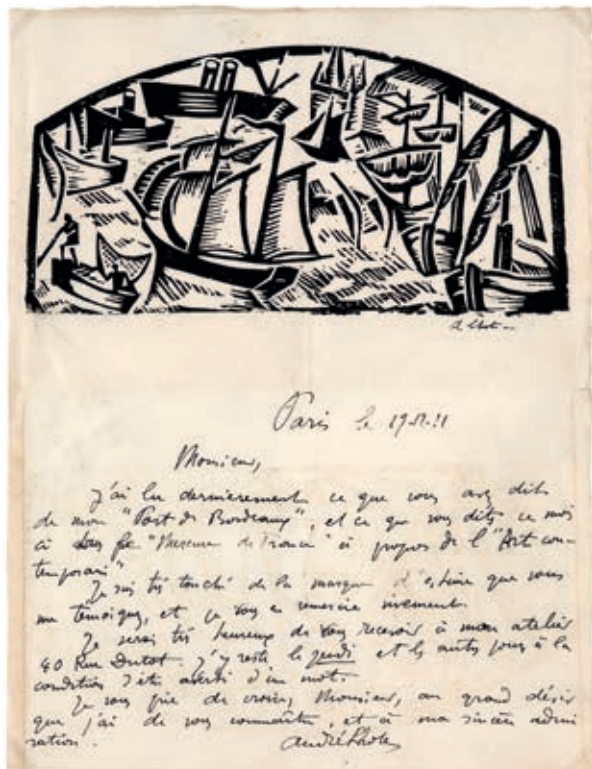 A Lhote
Paris le
Monsieur,
J'ai lu dernièrement ce que vous avez dit
de mon "Port de Bordeaux", et ce que vous dites ce mois
à "Mercure de France" à propos de l'"Art con-
temporain"
Je suis très touché de la marque d'estime que vous
me témoignez, et je vous en remercie vivement.
Je serai très heureux de vous recevoir à mon atelier
40 Rue Dutot. J'y reste le jeudi et les autres jours à la
condition d'être averti d'un mot.
Je vous prie de croire, Monsieur, au grand désir
que j'ai de vous connaître, et à ma sincère admi
ration.
André Lhote